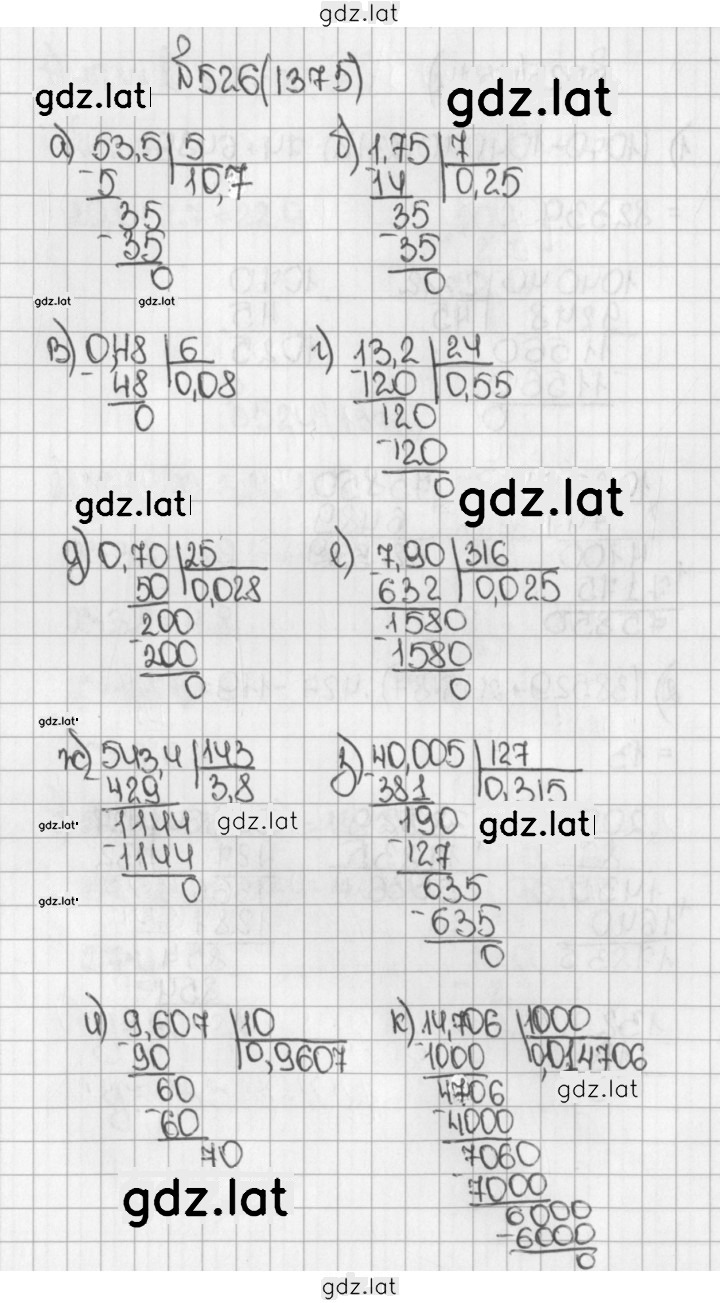 gdz.lat
№526(1375)
gdz.lat gdz.lat
а) 53,5 5 б) 1,75 7
-5 10,7 14 0,25
35 35
-35 -35
0 0
gdz.lat gdz.lat
в) 0,48 6 г) 13,2 24
-48 0,08 -120 0,55
0 120
-120
0
gdz.lat gdz.lat
д) 0,70 25 е) 7,90 316
50 0,028 -632 0,025
200 1580
-200 -1580
0 0
gdz.lat
ж) 543,4 143 з) 40,005 127
-429 3,8 -381 0,315
gdz.lat 1144 gdz.lat 190 gdz.lat
-1144 -127
0 635
gdz.lat -635
0
и) 9,607 10 к) 14,706 1000
-90 0,9607 -1000 0,014706
60 4706 gdz.lat
-60 -4000
70 7060
gdz.lat -7000
6000
-6000
0
gdz.lat